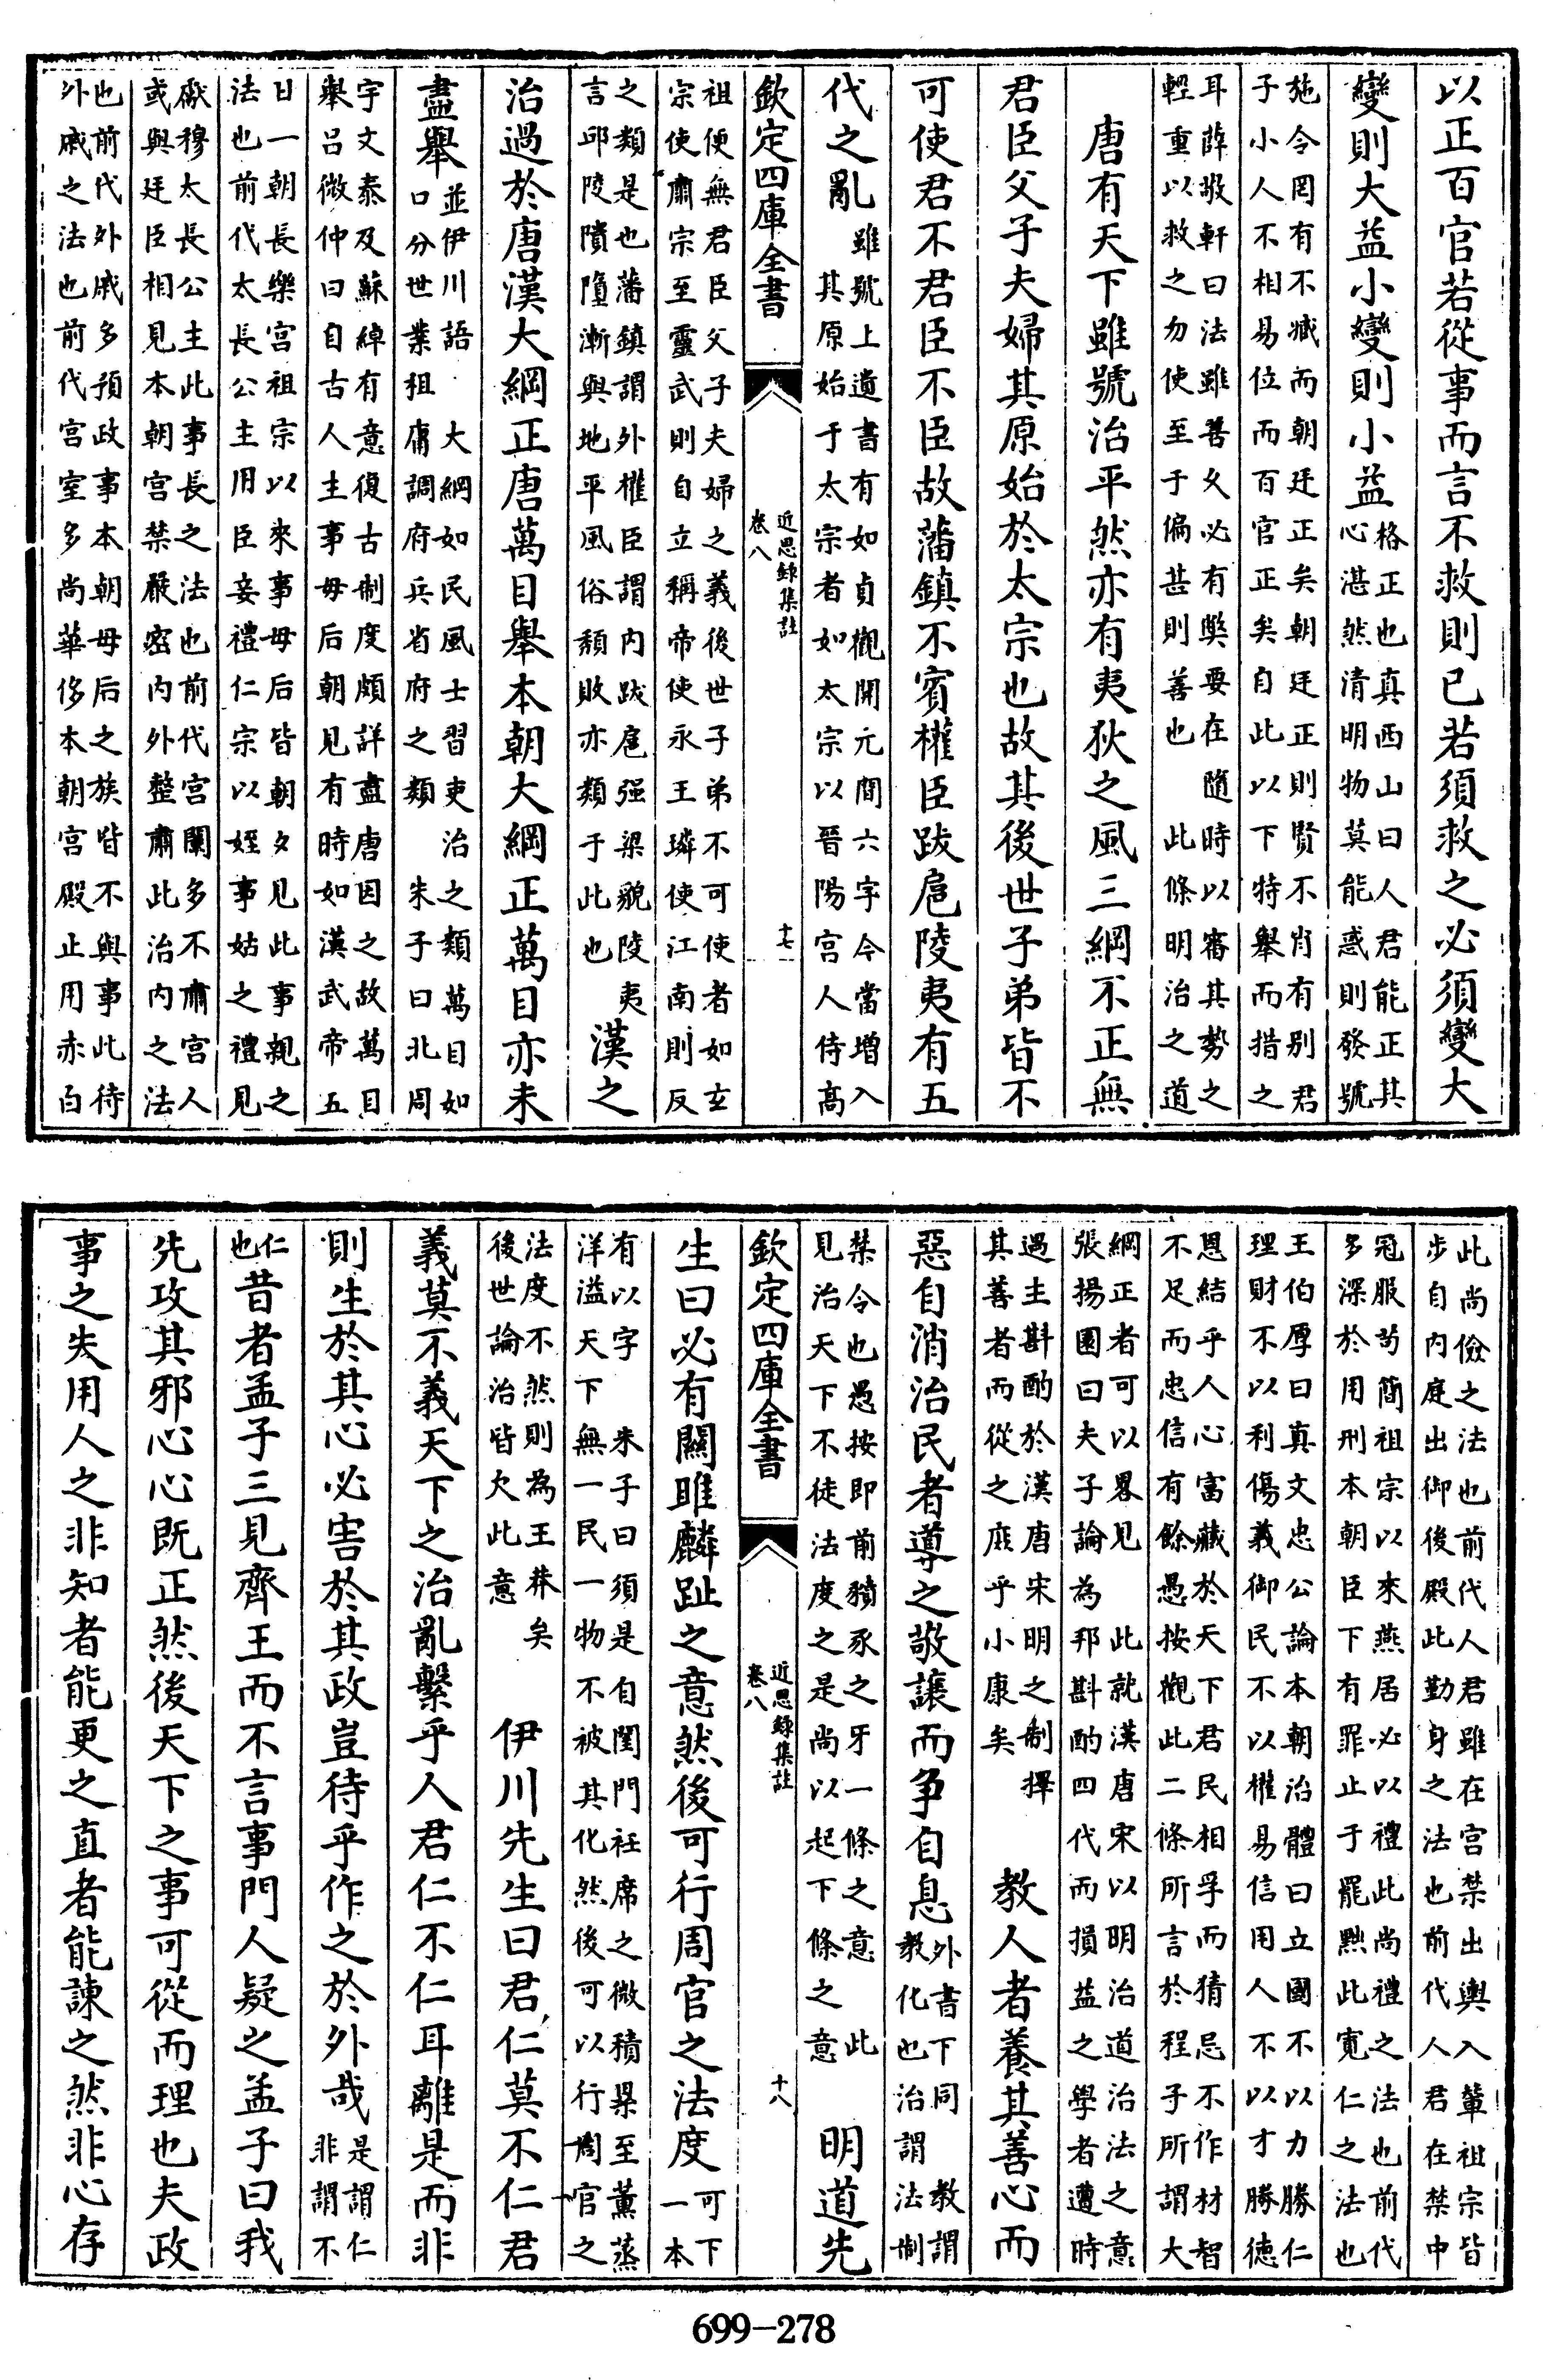 以正百官若從事而言不救則已若須救之必須變大
變則大益小變則小益格正也真西山曰人君能正其
心湛然清明物莫能惑則發號
施令罔有不臧而朝廷正矣朝廷正則賢不肖有别君
子小人不相易位而百官正矣自此以下特舉而措之
耳薛敬軒曰法雖善乆必有獘要在隨時以審其勢之
輕重以救之勿使至于偏甚則善也此條明治之道
唐有天下雖號治平然亦有夷狄之風三綱不正無
君臣父子夫婦其原始於太宗也故其後世子弟皆不
可使君不君臣不臣故藩鎮不賓權臣跋扈陵夷有五
代之亂雖號上遺書有如貞觀開元間六字今當増入
其原始于太宗者如太宗以晉陽宫人侍高
祖便無君臣父子夫婦之義後世子弟不可使者如玄
宗使肅宗至靈武則自立稱帝使永王璘使江南則反
之類是也藩鎮謂外權臣謂内跋扈强梁貌陵夷
言邱陵隤墮漸與地平風俗頽敗亦類于此也漢之
治過於唐漢大綱正唐萬目舉本朝大綱正萬目亦未
盡舉並伊川語大綱如民風士習吏治之類萬目如
口分世業租庸調府兵省府之類朱子曰北周
宇文泰及蘇綽有意復古制度頗詳盡唐因之故萬目
舉吕微仲曰自古人主事母后朝見有時如漢武帝五
日一朝長樂宫祖宗以來事母后皆朝夕見此事親之
法也前代太長公主用臣妾禮仁宗以姪事姑之禮見
獻穆太長公主此事長之法也前代宫闈多不肅宫人
或與廷臣相見本朝宫禁嚴密内外整肅此治内之法
也前代外戚多預政事本朝母后之族皆不與事此待
外戚之法也前代宫室多尚華侈本朝宫殿止用赤白
欽定四庫全書
近思錄集註
卷八
十七
此尚儉之法也前代人君雖在宫禁出輿入輦祖宗皆
步自内庭出御後殿此勤身之法也前代人君在禁中
冠服苟簡祖宗以來燕居必以禮此尚禮之法也前代
多深於用刑本朝臣下有罪止于罷黜此寛仁之法也
王伯厚曰真文忠公論本朝治體曰立國不以力勝仁
理財不以利傷義御民不以權易信用人不以才勝徳
恩結乎人心富藏於天下君民相孚而猜忌不作材智
不足而忠信有餘愚按觀此二條所言於程子所謂大
綱正者可以畧見此就漢唐宋以明治道治法之意
張揚園曰夫子論為邦斟酌四代而損益之學者遭時
遇主斟酌於漢唐宋明之制擇
其善者而從之庶乎小康矣教人者養其善心而
惡自消治民者導之敬讓而爭自息外書下同教謂
教化也治謂法制
禁令也愚按即前豶豕之牙一條之意此
見治天下不徒法度之是尚以起下條之意明道先
生曰必有關雎麟趾之意然後可行周官之法度可下
一本
有以字朱子曰須是自閨門袵席之微積絫至薰蒸
洋溢天下無一民一物不被其化然後可以行周官之
法度不然則為王莽矣
後世論治皆欠此意伊川先生曰君仁莫不仁君
義莫不義天下之治亂繫乎人君仁不仁耳離是而非
則生於其心必害於其政豈待乎作之於外哉是謂仁
非謂不
仁
也昔者孟子三見齊王而不言事門人疑之孟子曰我
先攻其邪心心既正然後天下之事可從而理也夫政
事之失用人之非知者能更之直者能諫之然非心存
欽定四庫全書
近思錄集註
卷八
十八
699-278